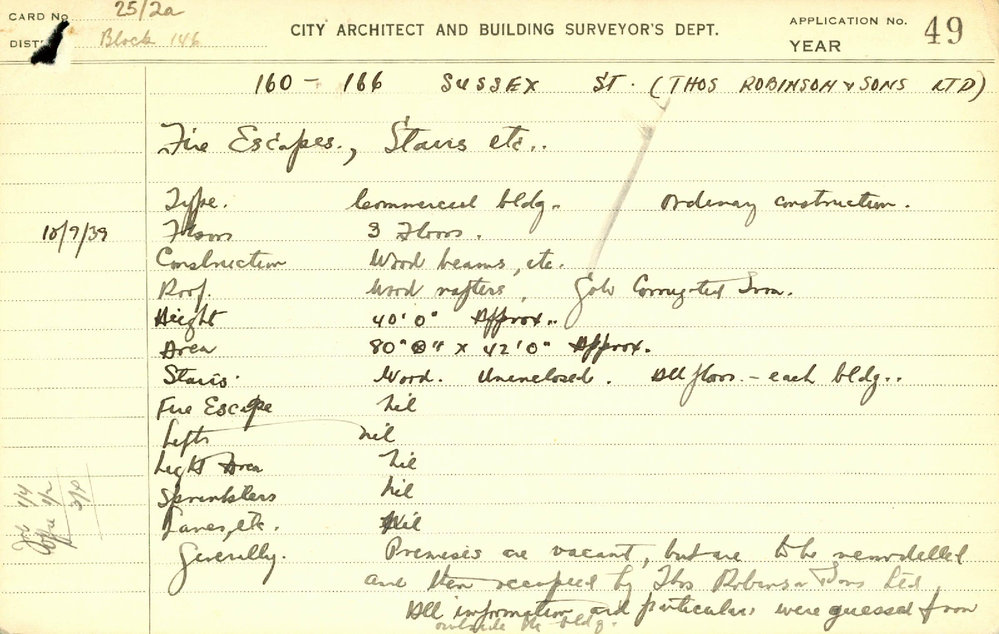 CARD No. 25/2a
CITY ARCHITECT AND BUILDING SURVEYOR'S DEPT.
APPLICATION No. 49
DIST. Block 146
YEAR
160 - 166 SUSSEX ST. (THOS ROBINSON & SONS LTD)
Fire Escapes., Stairs etc..
Type. Commercial bldg. Ordinary construction.
10/7/39 Floors 3 Floors.
Construction Wood beams, etc.
Roof. Wood rafters, Galv Corrugated Iron.
Height 40'0" Approx..
Area 80"0" x 42'0" Approx.
Stairs. Wood. Unenclosed. All floors. - each bldg..
Fire Escape nil
Lifts nil
Light Area nil
Sprinklers nil
Lanes, etc. Nil
Generally. Premises are vacant, but are to be remodelled
and then occupied by Thos Robinson Sons Ltd
All information and particulars were guessed from
outside the bldg.